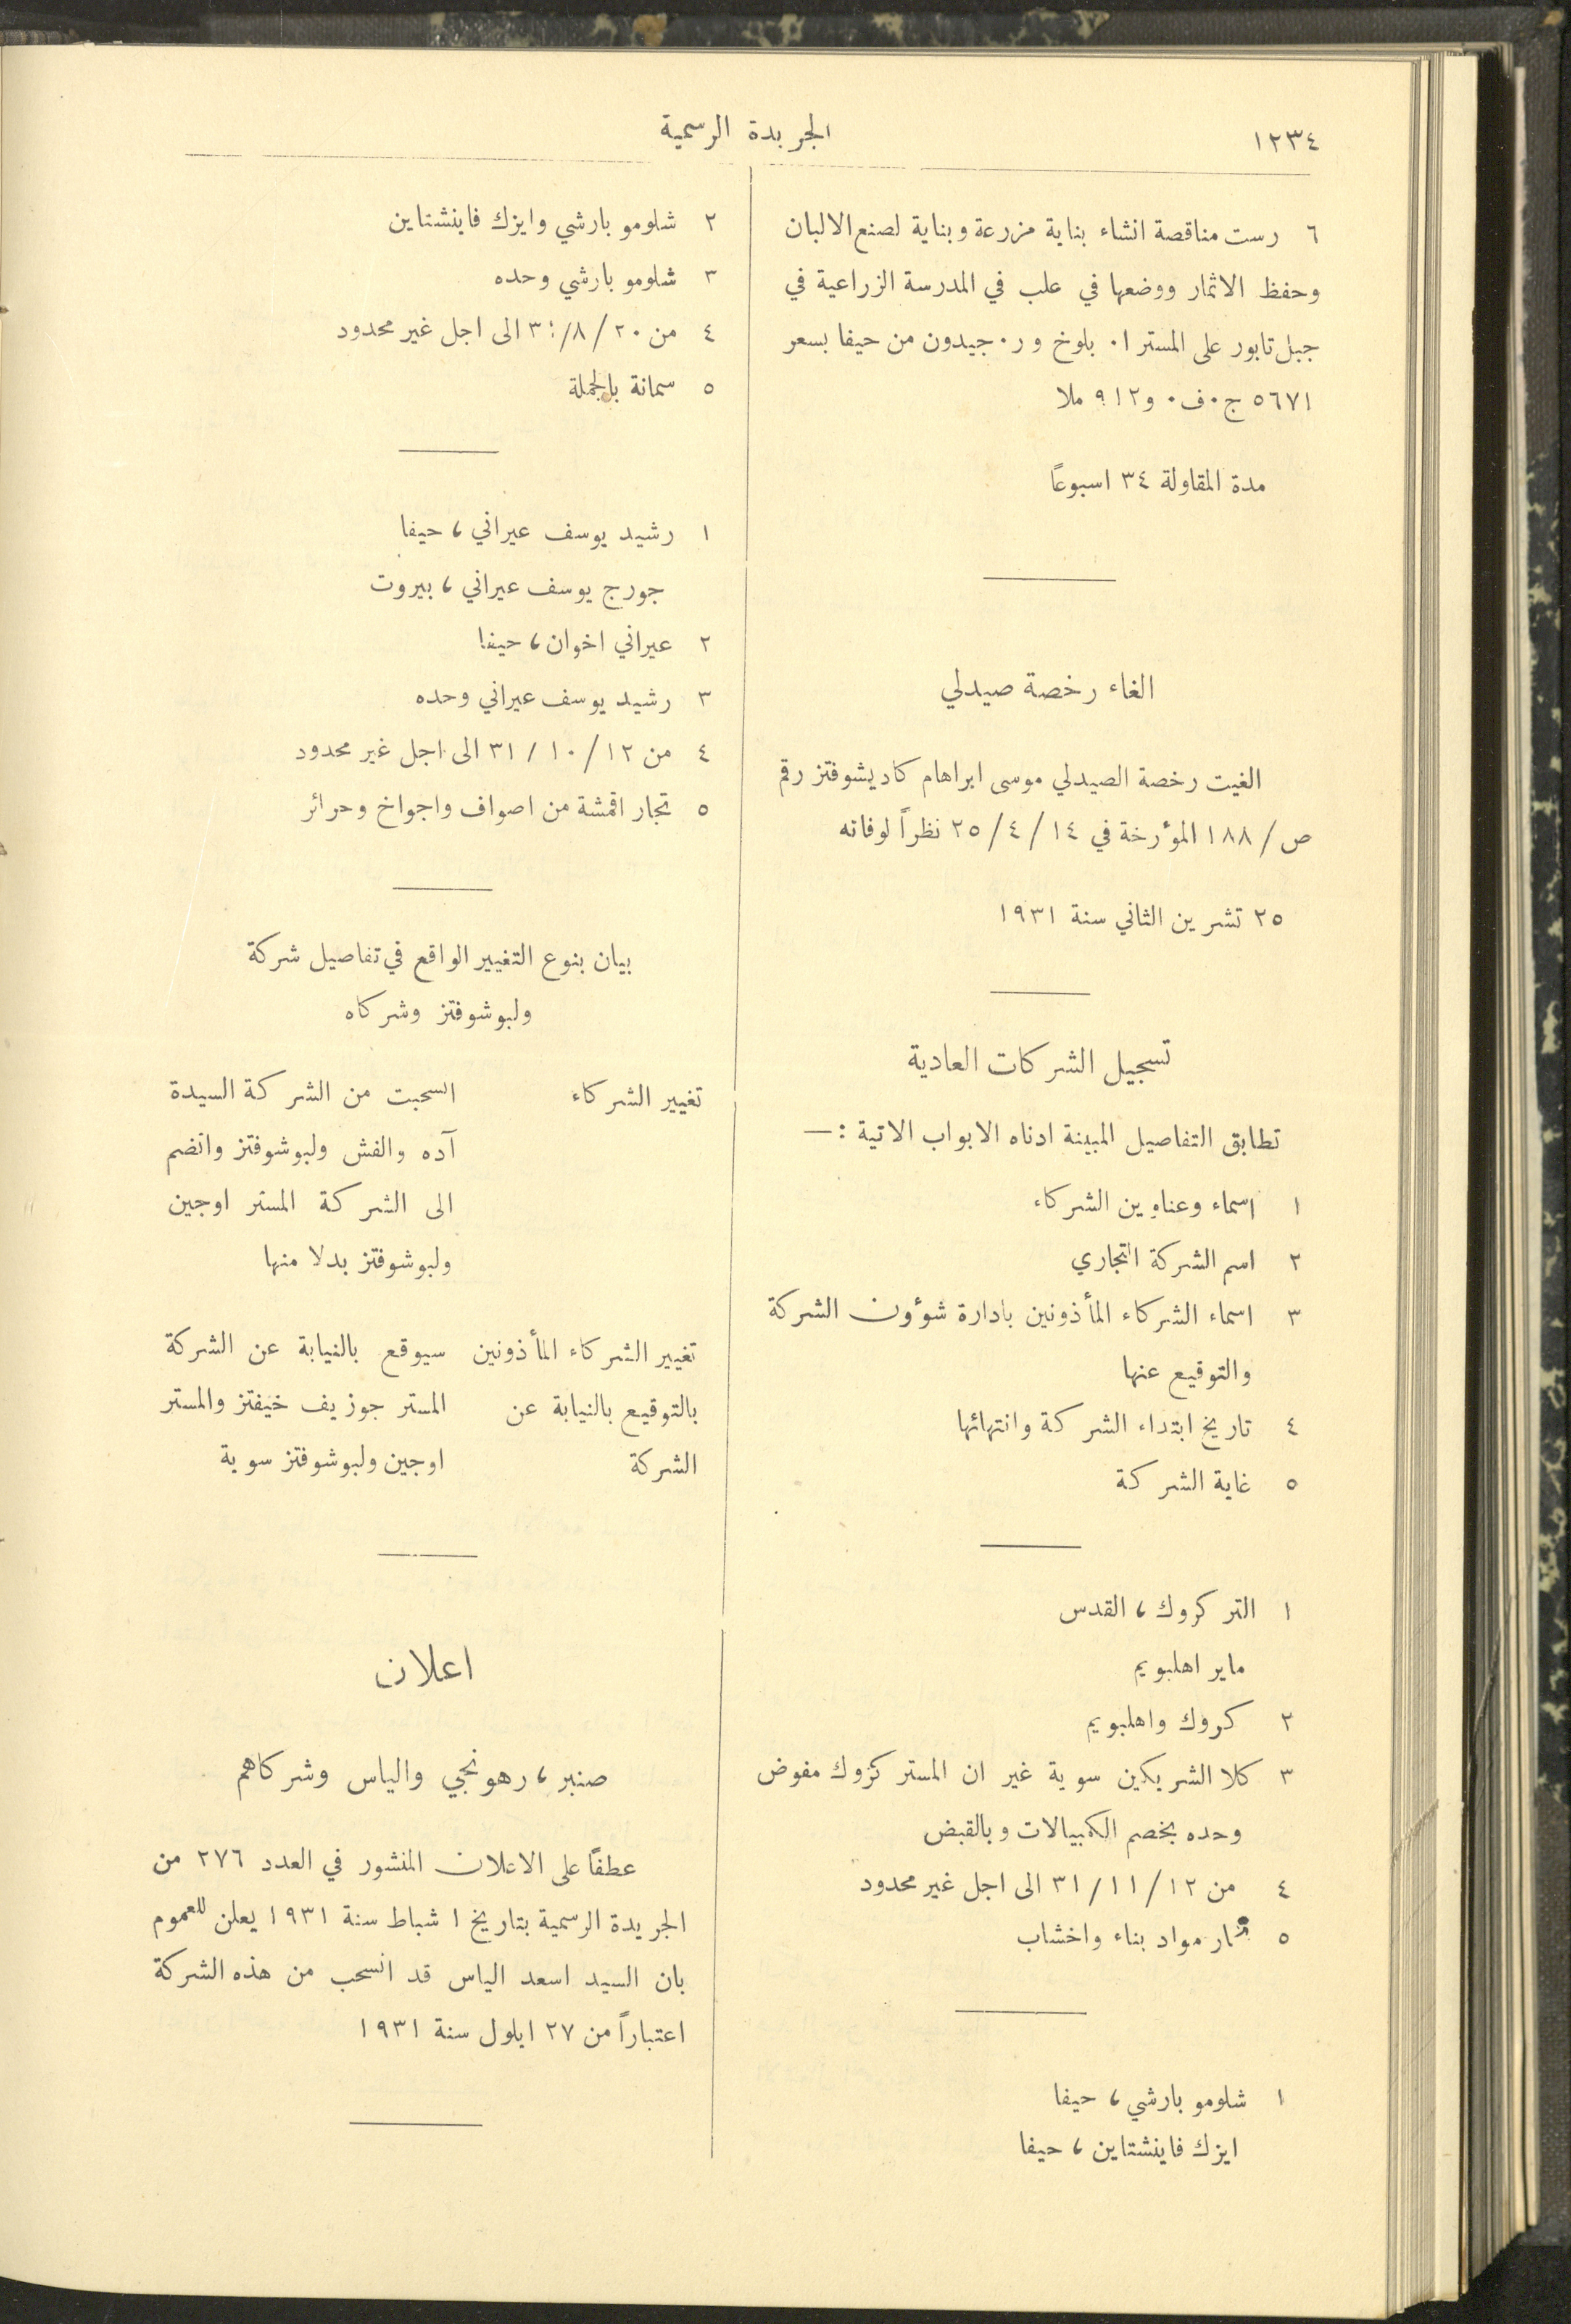 ١٢٣٤
الجريدة الرسمية
٦ رست مناقصة انشاء بناية مزرعة وبناية لصنع الالبان
وحفظ الاثمار ووضعها في علب في المدرسة الزراعية في
جبل تابور على المستر ا. بلوخ و ر. جيدون من حيفا بسعر
٥٦٧١ ج.ف. و٩١٢ ملا
مدة المقاولة ٣٤ اسبوعاً
الغاء رخصة صيدلي
الغيت رخصة الصيدلي موسى ابراهام كاديشوفتز رقم
ص/١٨٨ المؤرخة في ١٤/٤/٢٥ نظراً لوفاته
٢٥ تشرين الثاني سنة ١٩٣١
تسجيل الشركات العادية
تطابق التفاصيل المبينة ادناه الابواب الاتية :—
١ اسماء وعناوين الشركاء
٢ اسم الشركة التجاري
٣ اسماء الشركاء المأذونين بادارة شوؤون الشركة
والتوقيع عنها
٤ تاريخ ابتداء الشركة وانتهائها
٥ غاية الشركة
١ التر كروك، القدس
ماير اهلبويم
٢ كروك واهلبويم
٣ كلا الشريكين سوية غير ان المستر كروك مفوض
وحده بخصم الكبيالات وبالقبض
٤ من ١٢/١١/٣١ الى اجل غير محدود
٥ تجار مواد بناء واخشاب
١ شلومو بارشي، حيفا
ايزك فاينشتاين، حيفا
٢ شلومو بارشي وايزك فاينشتاين
٣ شلومو بارشي وحده
٤ من ٢٠/٨/٣١ الى اجل غير محدود
٥ سمانة بالجملة
١ رشيد يوسف عيراني، حيفا
جورج يوسف عيراني، بيروت
٢ عيراني اخوان، حيفا
٣ رشيد يوسف عيراني وحده
٤ من ١٢/١٠/٣١ الى اجل غير محدود
٥ تجار اقمشة من اصواف واجواخ وحرائر
بيان بنوع التغيير الواقع في تفاصيل شركة
ولبوشوفتز وشركاه
تغيير الشركاء انسحبت من الشركة السيدة
آده والفش ولبوشوفتز وانضم
الى الشركة المستر اوجين
ولبوشوفتز بدلا منها
تغيير الشركاء المأذونين سيوقع بالنيابة عن الشركة
بالتوقيع بالنيابة عن المستر جوزيف خيفتز والمستر
الشركة اوجين ولبوشوفتز سوية
اعلان
صنبر، رهونجي والياس وشركاهم
عطفاً على الاعلان المنشور في العدد ٢٧٦ من
الجريدة الرسمية بتاريخ ١ شباط سنة ١٩٣١ يعلن للعموم
بان السيد اسعد الياس قد انسحب من هذه الشركة
اعتباراً من ٢٧ ايلول سنة ١٩٣١